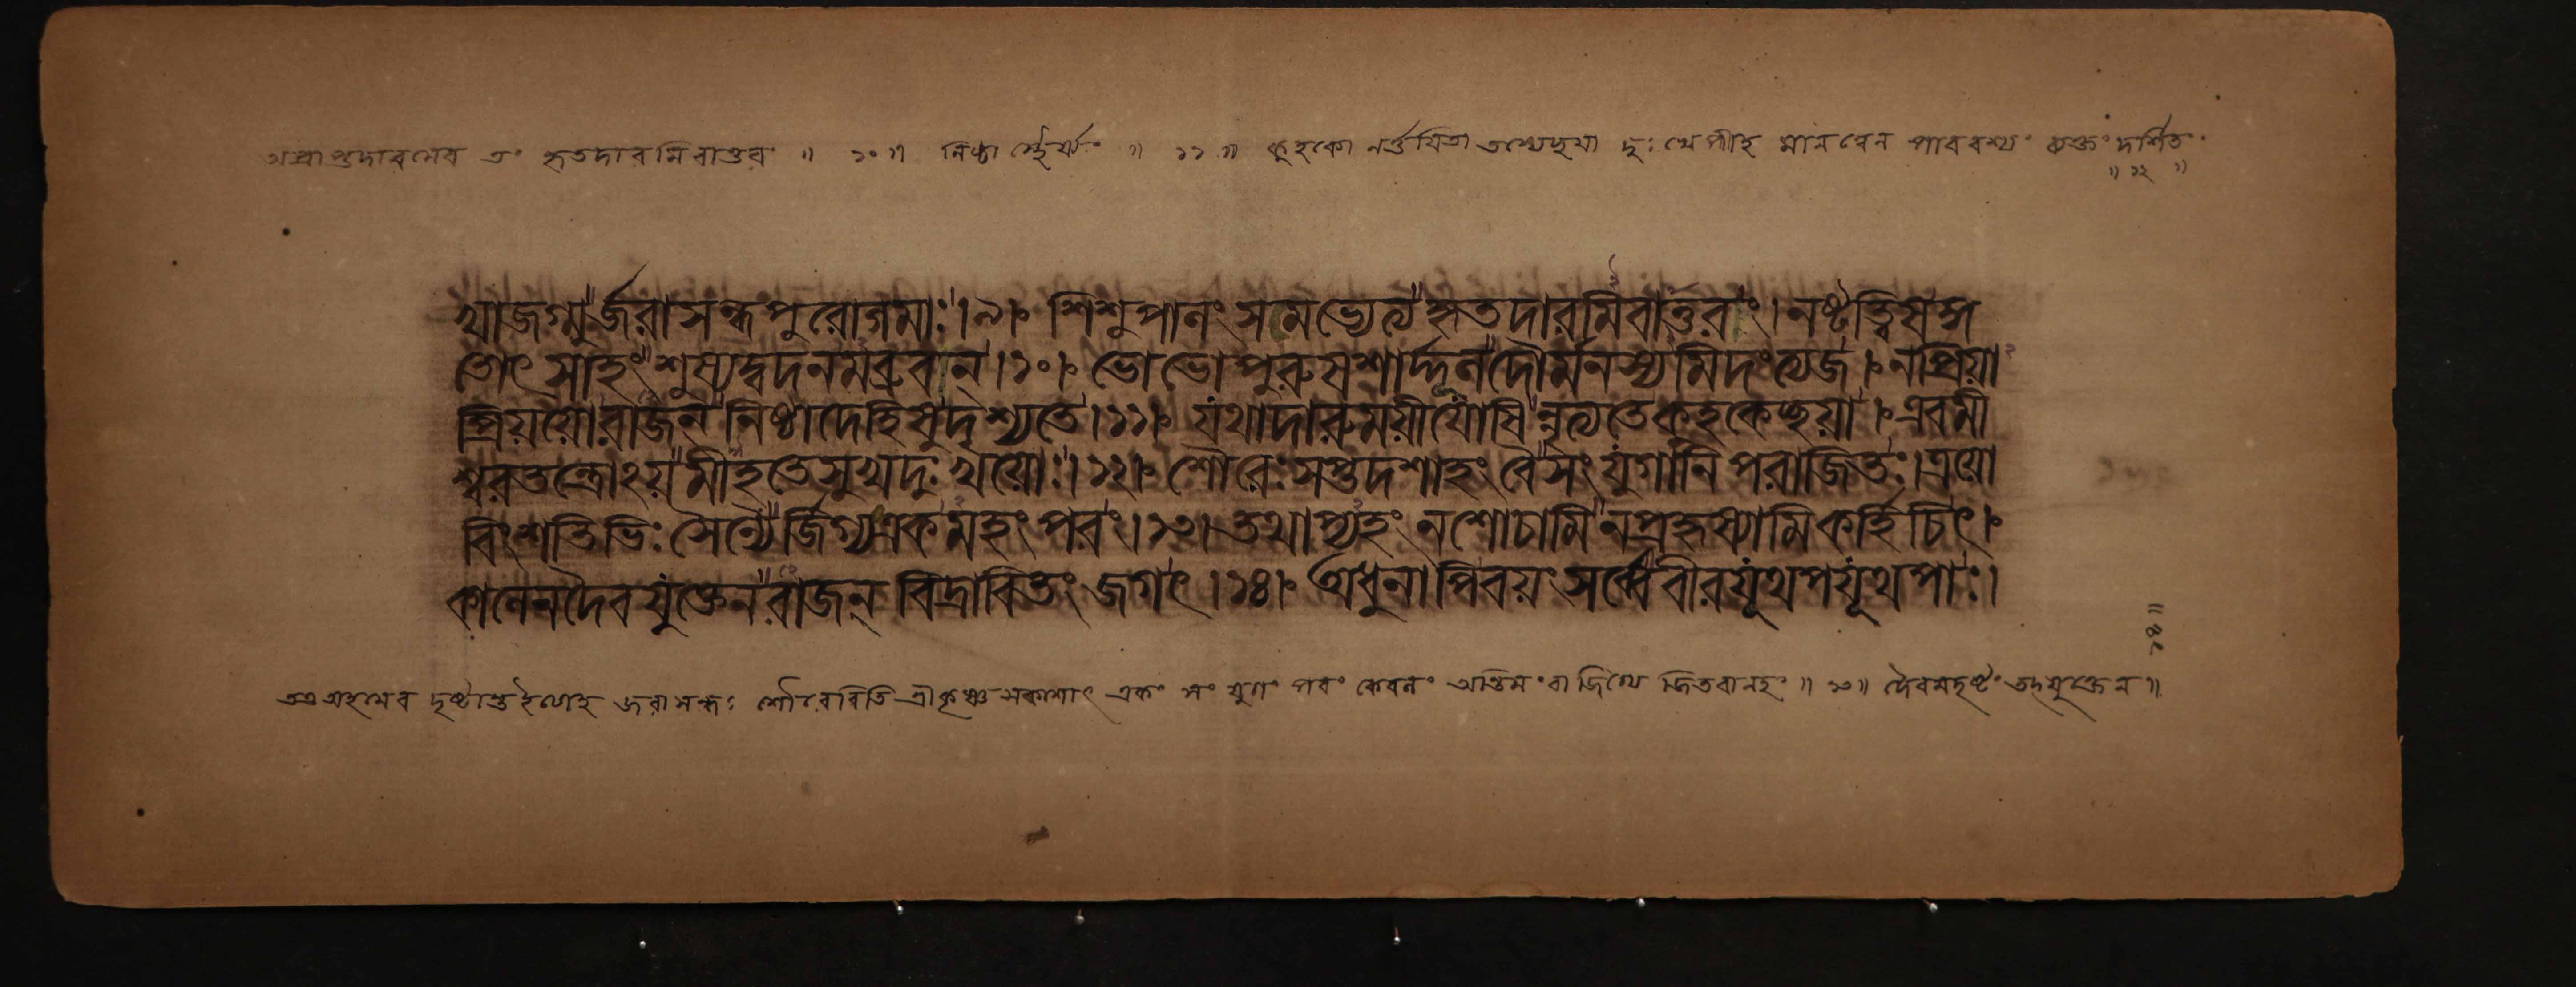 অপ্রাপ্তদারমেব তং হৃতদারমিবাতুরং ॥ ১০ ॥ নিষ্ঠা স্থৈর্য্যং ॥ ১১ ॥ কুহকো নর্ত্তয়িতা তস্যেচ্ছয়া দুঃখেপীহ মানবেন পারবশ্যং ব্যক্তং দর্শিতং
॥ ১২ ॥
খ্যাজগ্মুর্জরাসন্ধপুরোগমাঃ।৯। শিশুপালং সমভ্যেত্য হৃতদারমিবাতুরং। নষ্টত্বিষং গ
তোৎসাহং শুষ্যদ্বদনমব্রুবান্।১০। ভো ভো পুরুষশার্দ্দূল দৌর্মনস্যমিদং ত্যজ। ন প্রিয়া
প্রিয়য়োরাজন্ নিষ্ঠাদেহিষুদৃশ্যতে।১১। যথাদারুময়ীযোষিন্নৃত্যতেকুহকেচ্ছয়া। এবমী
শ্বরতন্ত্রোঽয়মীহতেসুখদুঃখয়োঃ।১২। শৌরেঃ সপ্তদশাহং বৈ সংযুগানি পরাজিতঃ। ত্রয়ো
বিংশতিভিঃ সৈন্যৈর্জিগ্যএকমহং পরং।১৩। তথাপ্যহং ন শোচামি ন প্রহৃষ্যামিকর্হিচিৎ।
কালেনদৈবযুক্তেন রাজন্ বিদ্রাবিতং জগৎ।১৪। অধুনাপিবয়ং সর্ব্বেবীরযূথপযূথপাঃ।
তত্র অহমেব দৃষ্টান্ত ইত্যাহ জরাসন্ধঃ শৌরেরিতি শ্রীকৃষ্ণসকাশাৎ একং সংযুগং পরং কেবলং অন্তিমং বা জিগ্যে জিতবানহং ॥ ১৩ ॥ দৈবমদৃষ্টং তদ্যুক্তেন ॥